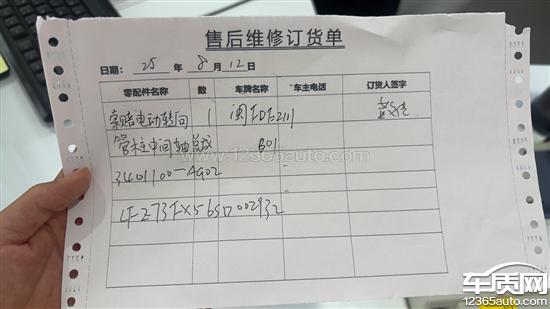 售后维修订货单
日期: 25 年 8 月 12 日
零配件名称 数 车牌名称 车主电话 订货人签字
索赔电动转向 1
管柱中间轴总成 B01
3401100-AG02
www.12365auto.com
车质网
12365auto.com